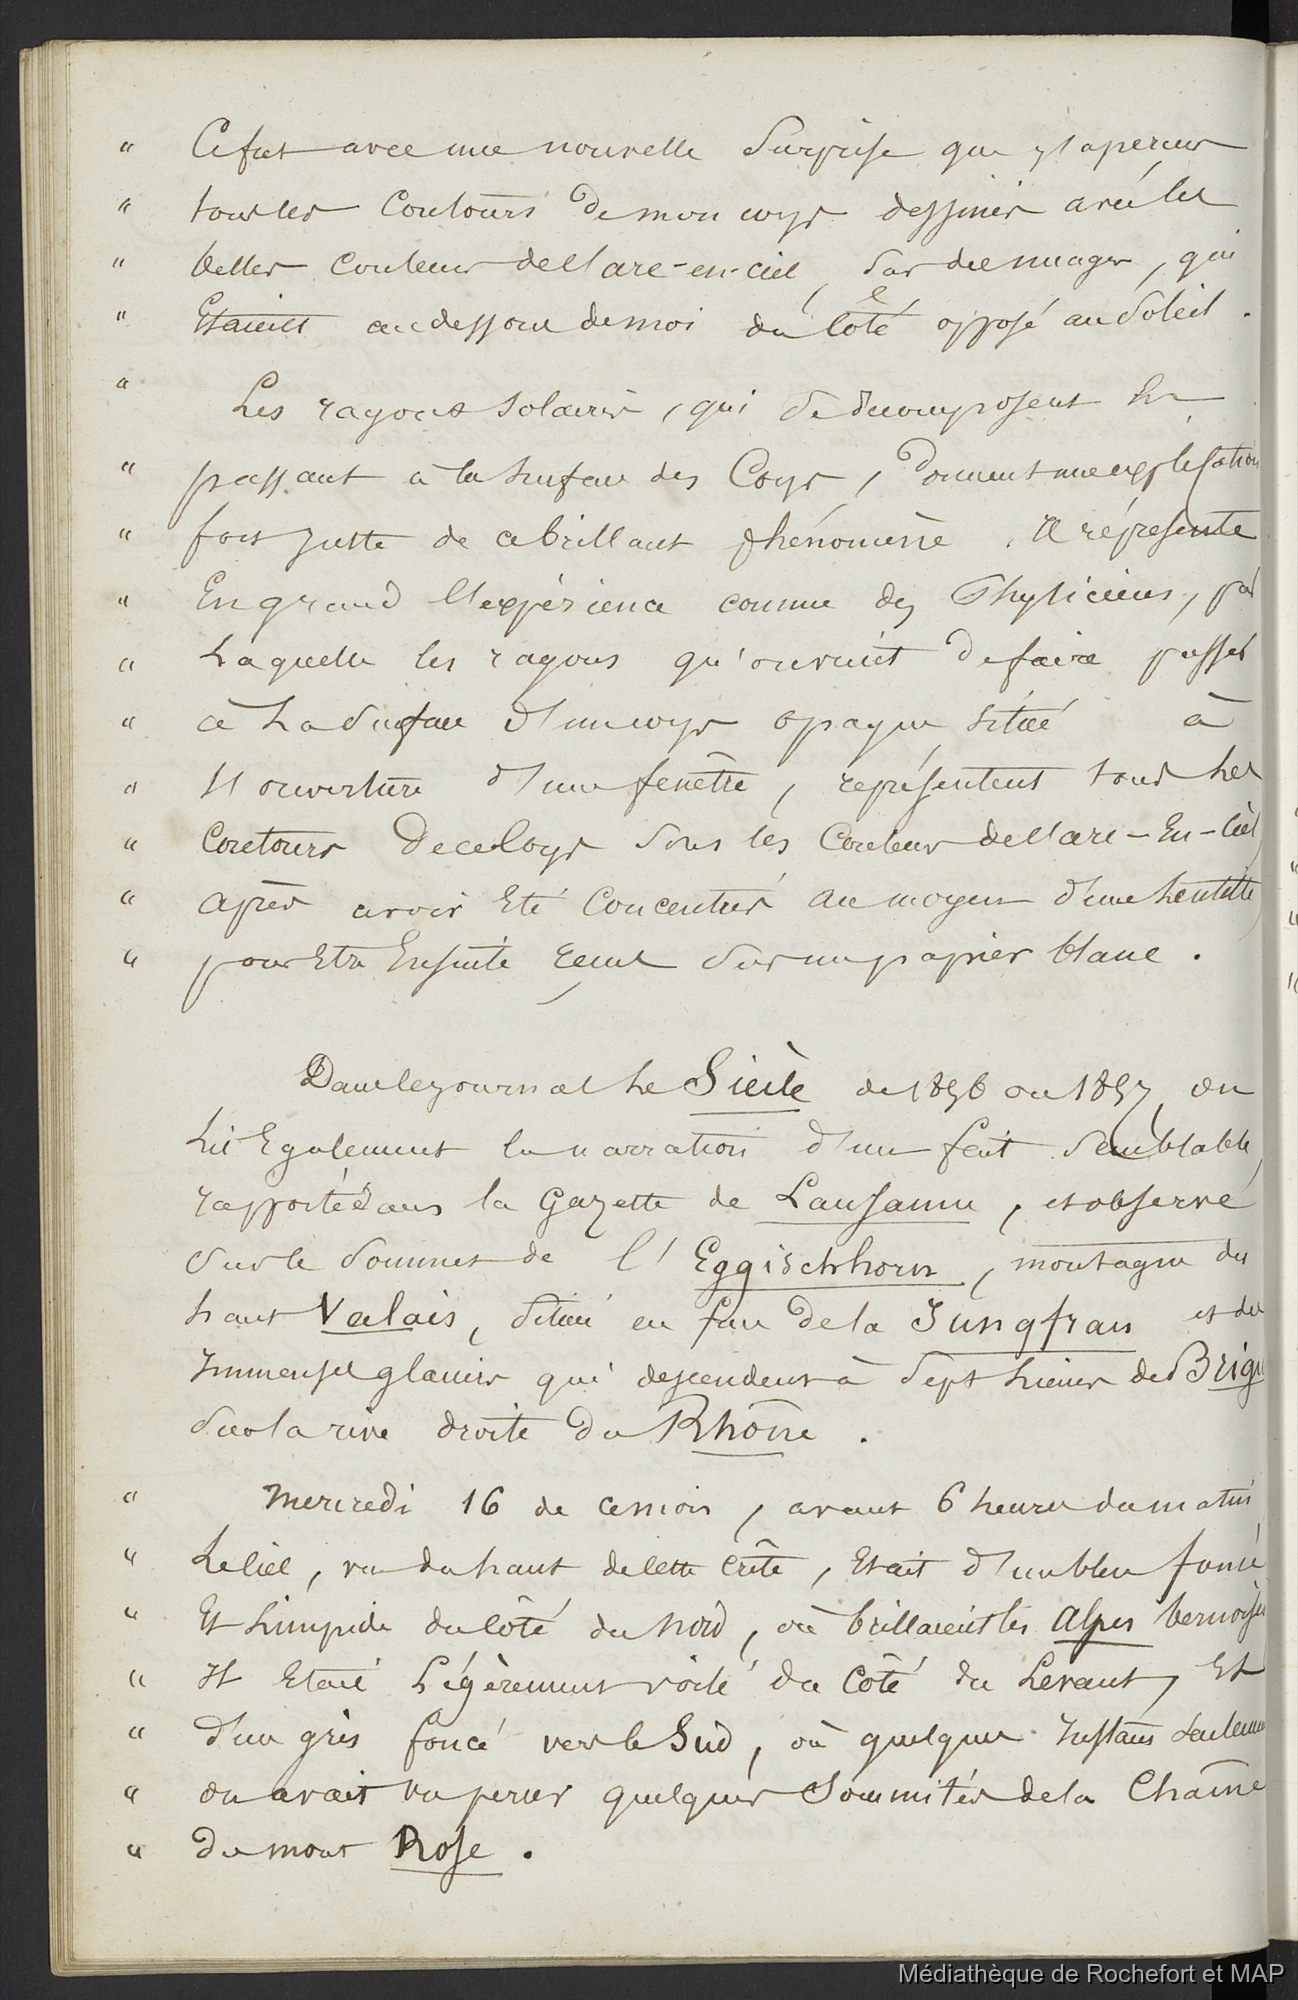 " Ce fut avec une nouvelle surprise que j'aperçus
" tous les contours de mon corps dessinés avec les
" belles couleurs de l'arc-en-ciel, sur des nuages, qui
" Etaient au dessous de moi du côté opposé au Soleil.
" Les rayons solaires, qui se décomposent En
" passant à la surface des Corps, donnent une explication
" fort juste de ce brillant phénomène. Il réprésente
" En grand l'expérience connue des Physiciens, par
" Laquelle les rayons qu'on vient de faire passer
" à La surface d'un corps opaque situé à
" l'ouverture d'une fenêtre, représentent tous les
" Contours de ce Corps sous les Couleurs de l'arc-En-Ciel,
" après avoir Eté Concentrés au moyen d'une Lentille,
" pour Etre Ensuite reçus sur un papier blanc.
Dans le journal Le Siècle de 1856 ou 1857, on
Lit Egalement la narration d'un fait semblable,
rapporté dans la Gazette de Lausanne, et observé
sur le sommet de l'Eggischhorn, montagne du
haut Valais, située en face de la Jungfrau et des
Immenses glaciers qui descendent à sept Lieues de Brigue
sur la rive droite du Rhône.
" Mercredi 16 de ce mois, avant 6 heures du matin
" Le Ciel, vu du haut de cette crête, Etait d'un bleu foncé
" Et Limpide du côté du nord, où brillaient les Alpes bernoises
" Il Etait Légèrement voilé du Côté du Levant, Et
" d'un gris foncé vers le Sud, où quelques Instans seulement
" on avait vu percer quelques Sommités de la Chaîne
" du mont Rose.
Médiathèque de Rochefort et MAP